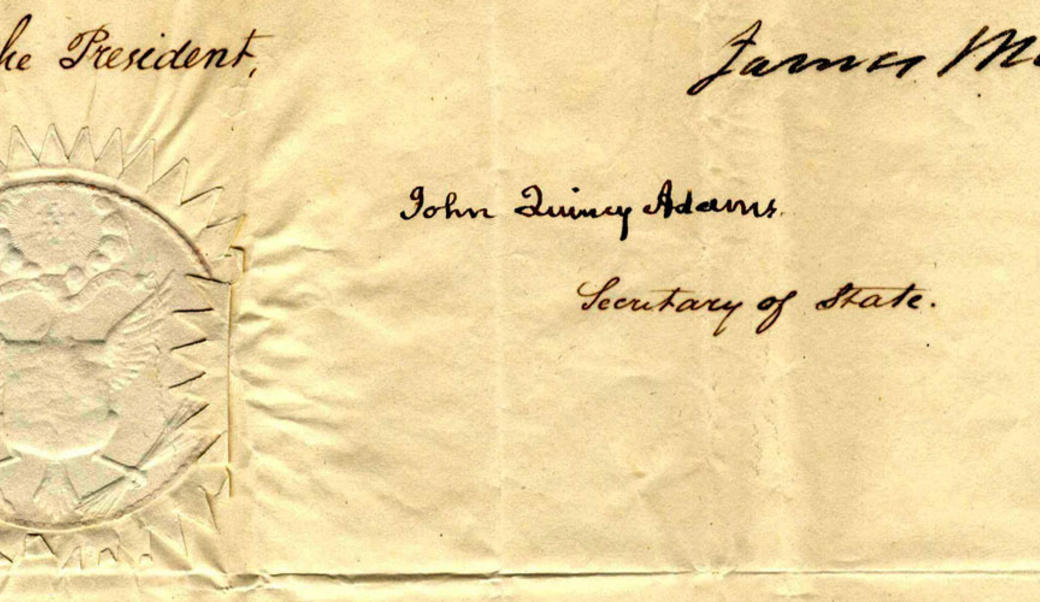 he President,
James M
John Quincy Adams.
Secretary of State.